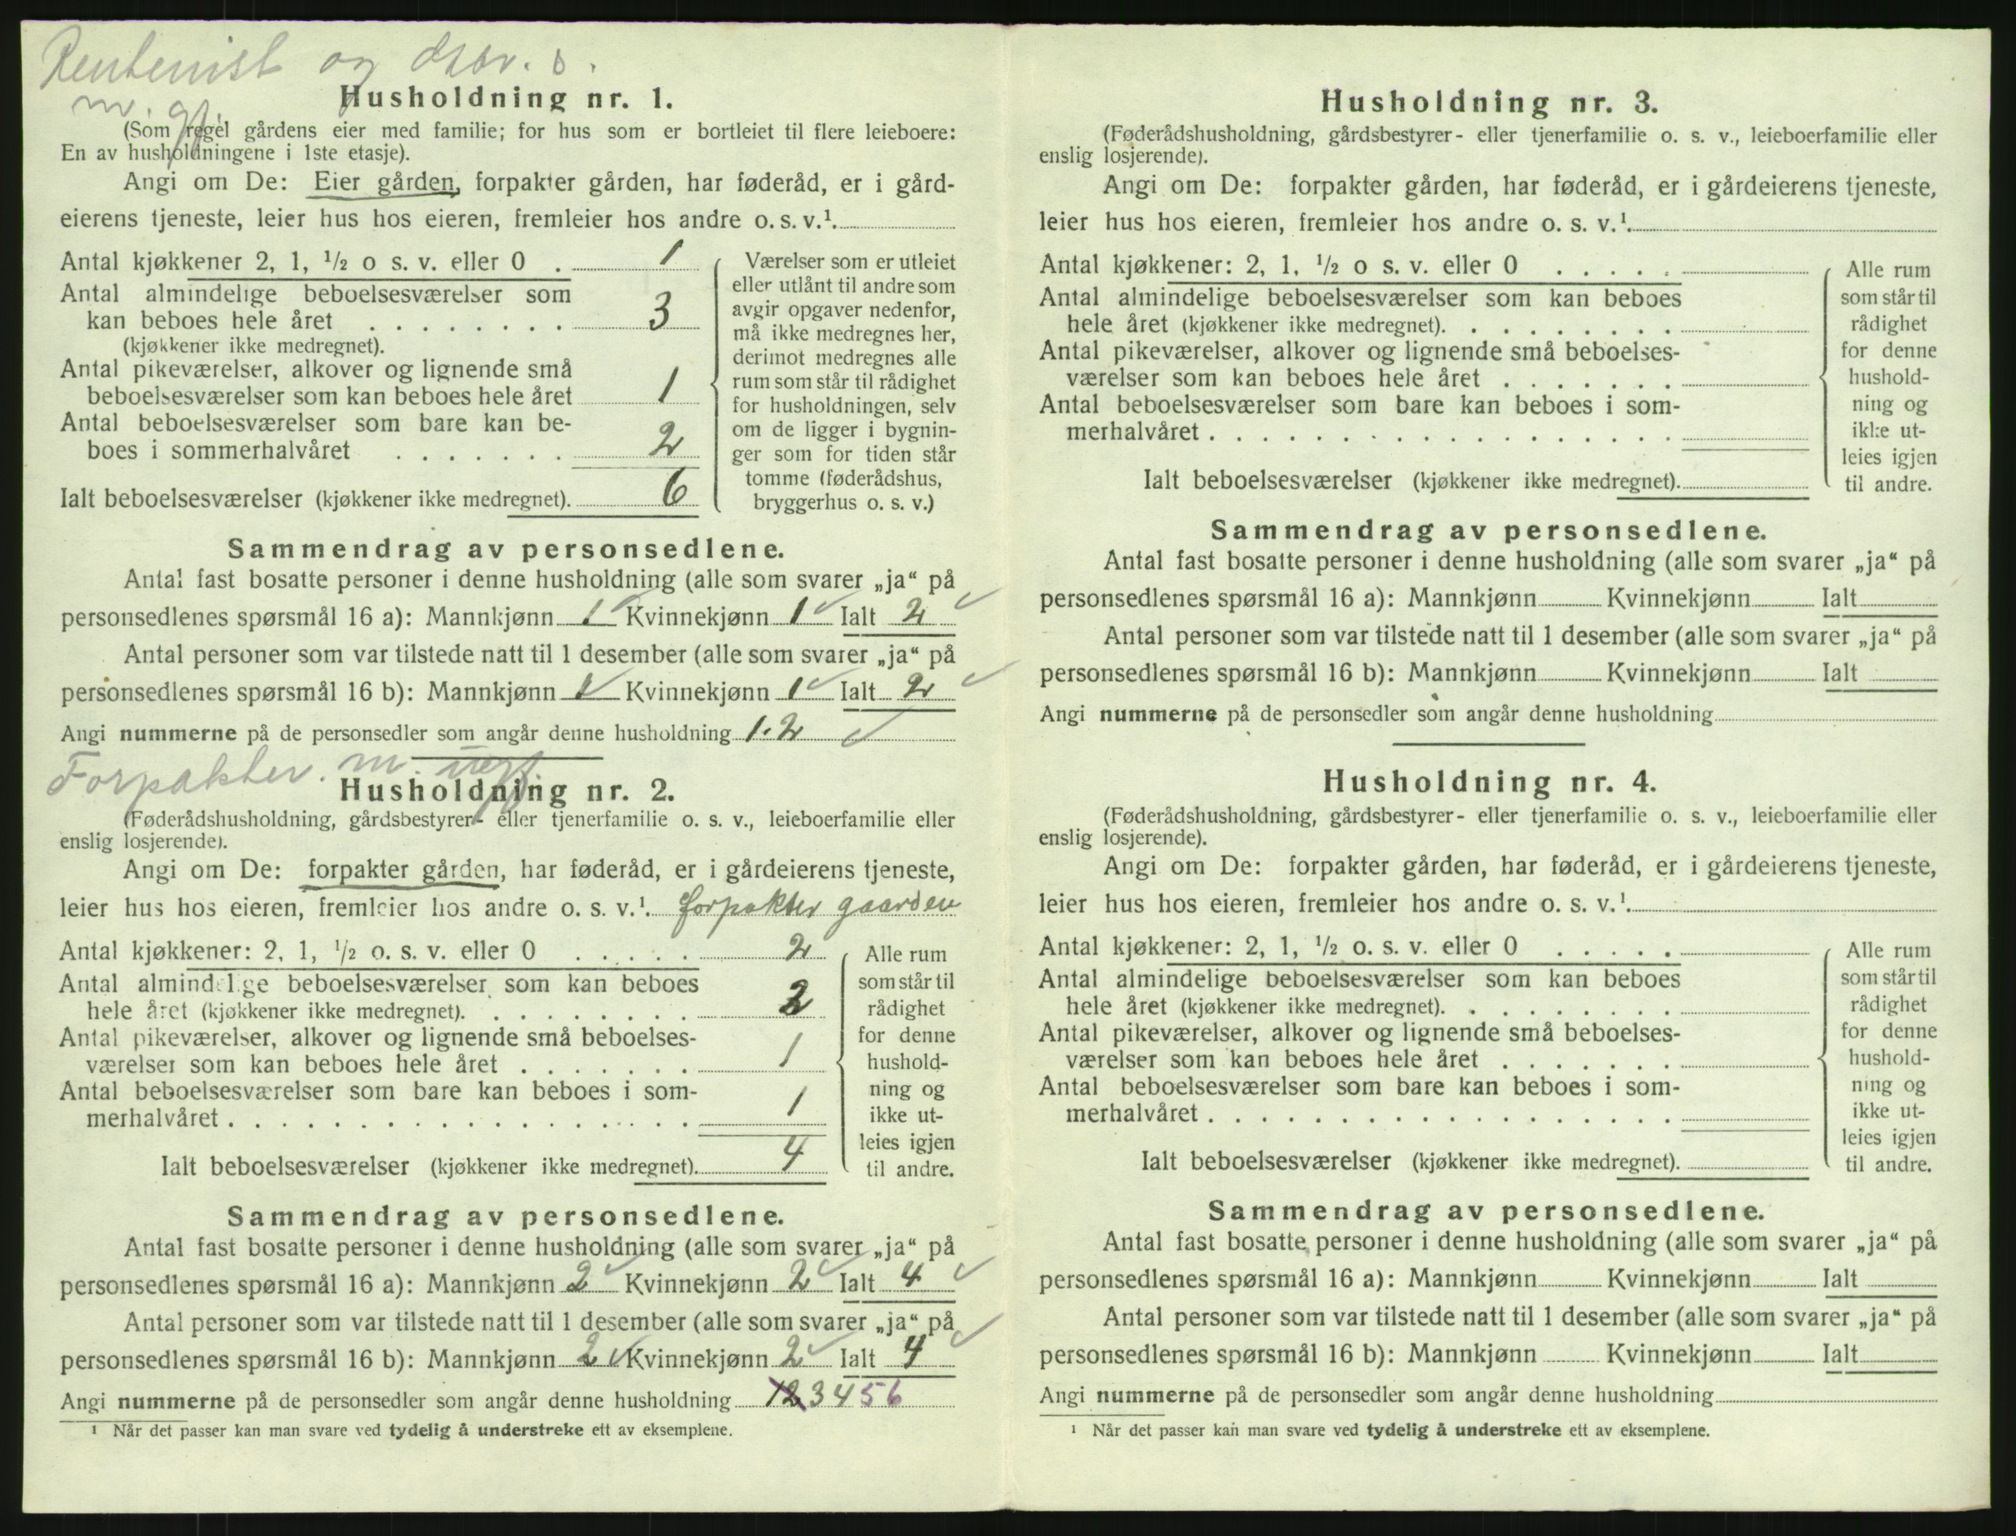 Rentenist og
Husholdning nr. 1.
(Som regel gårdens eier med familie; for hus som er bortleiet til flere leieboere:
En av husholdningene i 1ste etasje).
Angi om De: Eier gården, forpakter gården, har føderåd, er i gård-
eierens tjeneste, leier hus hos eieren, fremleier hos andre o. s. v.¹.
Antal kjøkkener 2, 1, ½ o s. v. eller 0 . 1
Antal almindelige beboelsesværelser som
kan beboes hele året . . . . . . . . 3
(kjøkkener ikke medregnet).
Antal pikeværelser, alkover og lignende små
beboelsesværelser som kan beboes hele året 1
Antal beboelsesværelser som bare kan be-
boes i sommerhalvåret . . . . . . . 2
Ialt beboelsesværelser (kjøkkener ikke medregnet). 6
Værelser som er utleiet
eller utlånt til andre som
avgir opgaver nedenfor,
må ikke medregnes her,
derimot medregnes alle
rum som står til rådighet
for husholdningen, selv
om de ligger i bygnin-
ger som for tiden står
tomme (føderådshus,
bryggerhus o. s. v.)
Sammendrag av personsedlene.
Antal fast bosatte personer i denne husholdning (alle som svarer „ja“ på
personsedlenes spørsmål 16 a): Mannkjønn 1 Kvinnekjønn 1 Ialt 2
Antal personer som var tilstede natt til 1 desember (alle som svarer „ja“ på
personsedlenes spørsmål 16 b): Mannkjønn 1 Kvinnekjønn 1 Ialt 2
Angi nummerne på de personsedler som angår denne husholdning 1.2
Forpakter. m. ugf.
Husholdning nr. 2.
(Føderådshusholdning, gårdsbestyrer- eller tjenerfamilie o. s. v., leieboerfamilie eller
enslig losjerende).
Angi om De: forpakter gården, har føderåd, er i gårdeierens tjeneste,
leier hus hos eieren, fremleier hos andre o. s. v.¹. forpakter gaarden
Antal kjøkkener: 2, 1, ½ o. s. v. eller 0 . . . . . 2
Antal almindelige beboelsesværelser som kan beboes
hele året (kjøkkener ikke medregnet). . . . . . . . . 2
Antal pikeværelser, alkover og lignende små beboelses-
værelser som kan beboes hele året . . . . . . . 1
Antal beboelsesværelser som bare kan beboes i som-
merhalvåret . . . . . . . . . . . . . . . . . . 1
Ialt beboelsesværelser (kjøkkener ikke medregnet). 4
Alle rum
som står til
rådighet
for denne
hushold-
ning og
ikke ut-
leies igjen
til andre.
Sammendrag av personsedlene.
Antal fast bosatte personer i denne husholdning (alle som svarer „ja“ på
personsedlenes spørsmål 16 a): Mannkjønn 2 Kvinnekjønn 2 Ialt 4
Antal personer som var tilstede natt til 1 desember (alle som svarer „ja“ på
personsedlenes spørsmål 16 b): Mannkjønn 2 Kvinnekjønn 2 Ialt 4
Angi nummerne på de personsedler som angår denne husholdning 12 3 4 5 6
¹ Når det passer kan man svare ved tydelig å understreke ett av eksemplene.
Husholdning nr. 3.
(Føderådshusholdning, gårdsbestyrer- eller tjenerfamilie o. s. v., leieboerfamilie eller
enslig losjerende).
Angi om De: forpakter gården, har føderåd, er i gårdeierens tjeneste,
leier hus hos eieren, fremleier hos andre o. s. v.¹.
Antal kjøkkener: 2, 1, ½ o s. v. eller 0 . . . . .
Antal almindelige beboelsesværelser som kan beboes
hele året (kjøkkener ikke medregnet). . . . . . . . .
Antal pikeværelser, alkover og lignende små beboelses-
værelser som kan beboes hele året . . . . . . .
Antal beboelsesværelser som bare kan beboes i som-
merhalvåret . . . . . . . . . . . . . . . . . .
Ialt beboelsesværelser (kjøkkener ikke medregnet).
Alle rum
som står til
rådighet
for denne
hushold-
ning og
ikke ut-
leies igjen
til andre.
Sammendrag av personsedlene.
Antal fast bosatte personer i denne husholdning (alle som svarer „ja“ på
personsedlenes spørsmål 16 a): Mannkjønn Kvinnekjønn Ialt
Antal personer som var tilstede natt til 1 desember (alle som svarer „ja“ på
personsedlenes spørsmål 16 b): Mannkjønn Kvinnekjønn Ialt
Angi nummerne på de personsedler som angår denne husholdning
Husholdning nr. 4.
(Føderådshusholdning, gårdsbestyrer- eller tjenerfamilie o. s. v., leieboerfamilie eller
enslig losjerende).
Angi om De: forpakter gården, har føderåd, er i gårdeierens tjeneste,
leier hus hos eieren, fremleier hos andre o. s. v.¹.
Antal kjøkkener: 2, 1, ½ o. s. v. eller 0 . . . . .
Antal almindelige beboelsesværelser som kan beboes
hele året (kjøkkener ikke medregnet). . . . . . . . .
Antal pikeværelser, alkover og lignende små beboelses-
værelser som kan beboes hele året . . . . . . .
Antal beboelsesværelser som bare kan beboes i som-
merhalvåret . . . . . . . . . . . . . . . . . .
Ialt beboelsesværelser (kjøkkener ikke medregnet).
Alle rum
som står til
rådighet
for denne
hushold-
ning og
ikke ut-
leies igjen
til andre.
Sammendrag av personsedlene.
Antal fast bosatte personer i denne husholdning (alle som svarer „ja“ på
personsedlenes spørsmål 16 a): Mannkjønn Kvinnekjønn Ialt
Antal personer som var tilstede natt til 1 desember (alle som svarer „ja“ på
personsedlenes spørsmål 16 b): Mannkjønn Kvinnekjønn Ialt
Angi nummerne på de personsedler som angår denne husholdning
¹ Når det passer kan man svare ved tydelig å understreke ett av eksemplene.